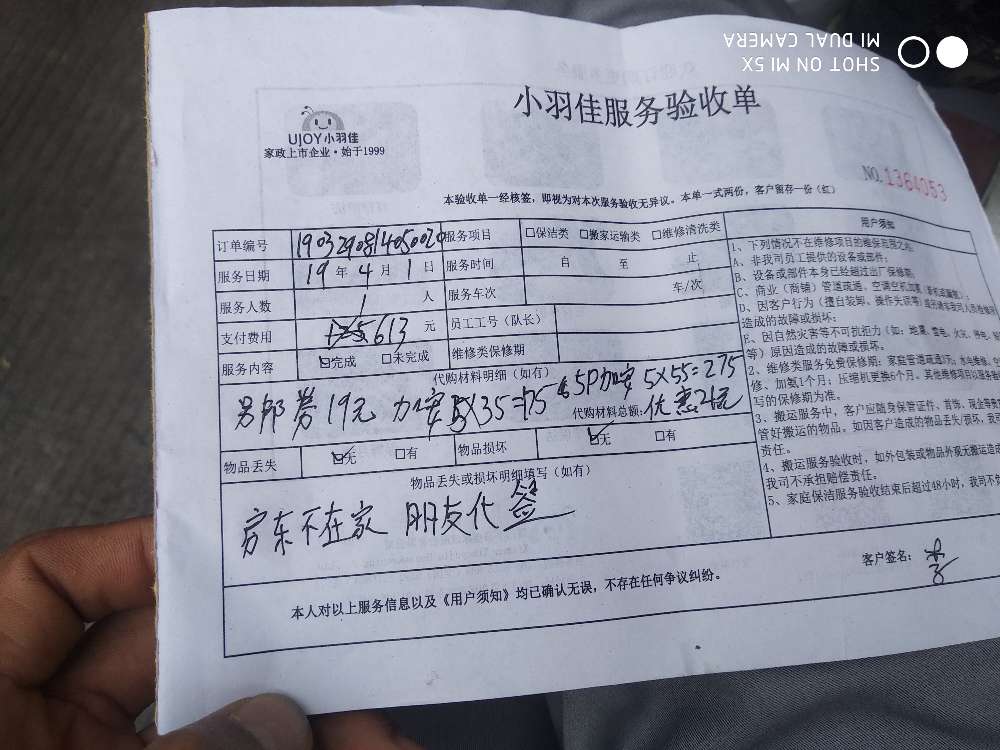 SHOT ON MI 5X
MI DUAL CAMERA
小羽佳服务验收单
UJOY小羽佳
家政上市企业·始于1999
NO.1364053
本验收单一经核签，即视为对本次服务验收无异议。本单一式两份，客户留存一份（红）
订单编号 190329081405002 服务项目 □保洁类 □搬家运输类 □维修清洗类
服务日期 19年4月1日 服务时间 自 至 止
服务人数 1 人 服务车次 车/次
支付费用 613 元 员工工号（队长）
服务内容 ☑完成 □未完成 维修类保修期
代购材料明细（如有）
券19元 5X35=175 5P 5X55=275
代购材料总额: 优惠
物品丢失 ☑无 □有 物品损坏 ☑无 □有
物品丢失或损坏明细填写（如有）
房东不在家 朋友代签
本人对以上服务信息以及《用户须知》均已确认无误，不存在任何争议纠纷。
客户签名:
用户须知
1、下列情况不在维修项目的维保范围之内:
A、非我司员工提供的设备或部件;
B、设备或部件本身已经超过出厂保修期;
C、商业（商铺）管道疏通、空调空机加氟
D、因客户行为（擅自装卸、操作失误等）
造成的故障或损坏;
E、因自然灾害等不可抗拒力（如: 地震、雷电、水灾、停电、
等）原因造成的故障或损坏。
2、维修类服务免费保修期: 家庭管道疏通
修、加氨1个月; 压缩机更换6个月。其他维修项目以服务
写的保修期为准。
3、搬运服务中，客户应随身保管证件、首饰、现金等
管好搬运的物品。如因客户造成的物品丢失/损坏，我司
责任。
4、搬运服务验收时，如外包装或物品外观无搬运造成
我司不承担赔偿责任。
5、家庭保洁服务验收结束后超过48小时，我司不